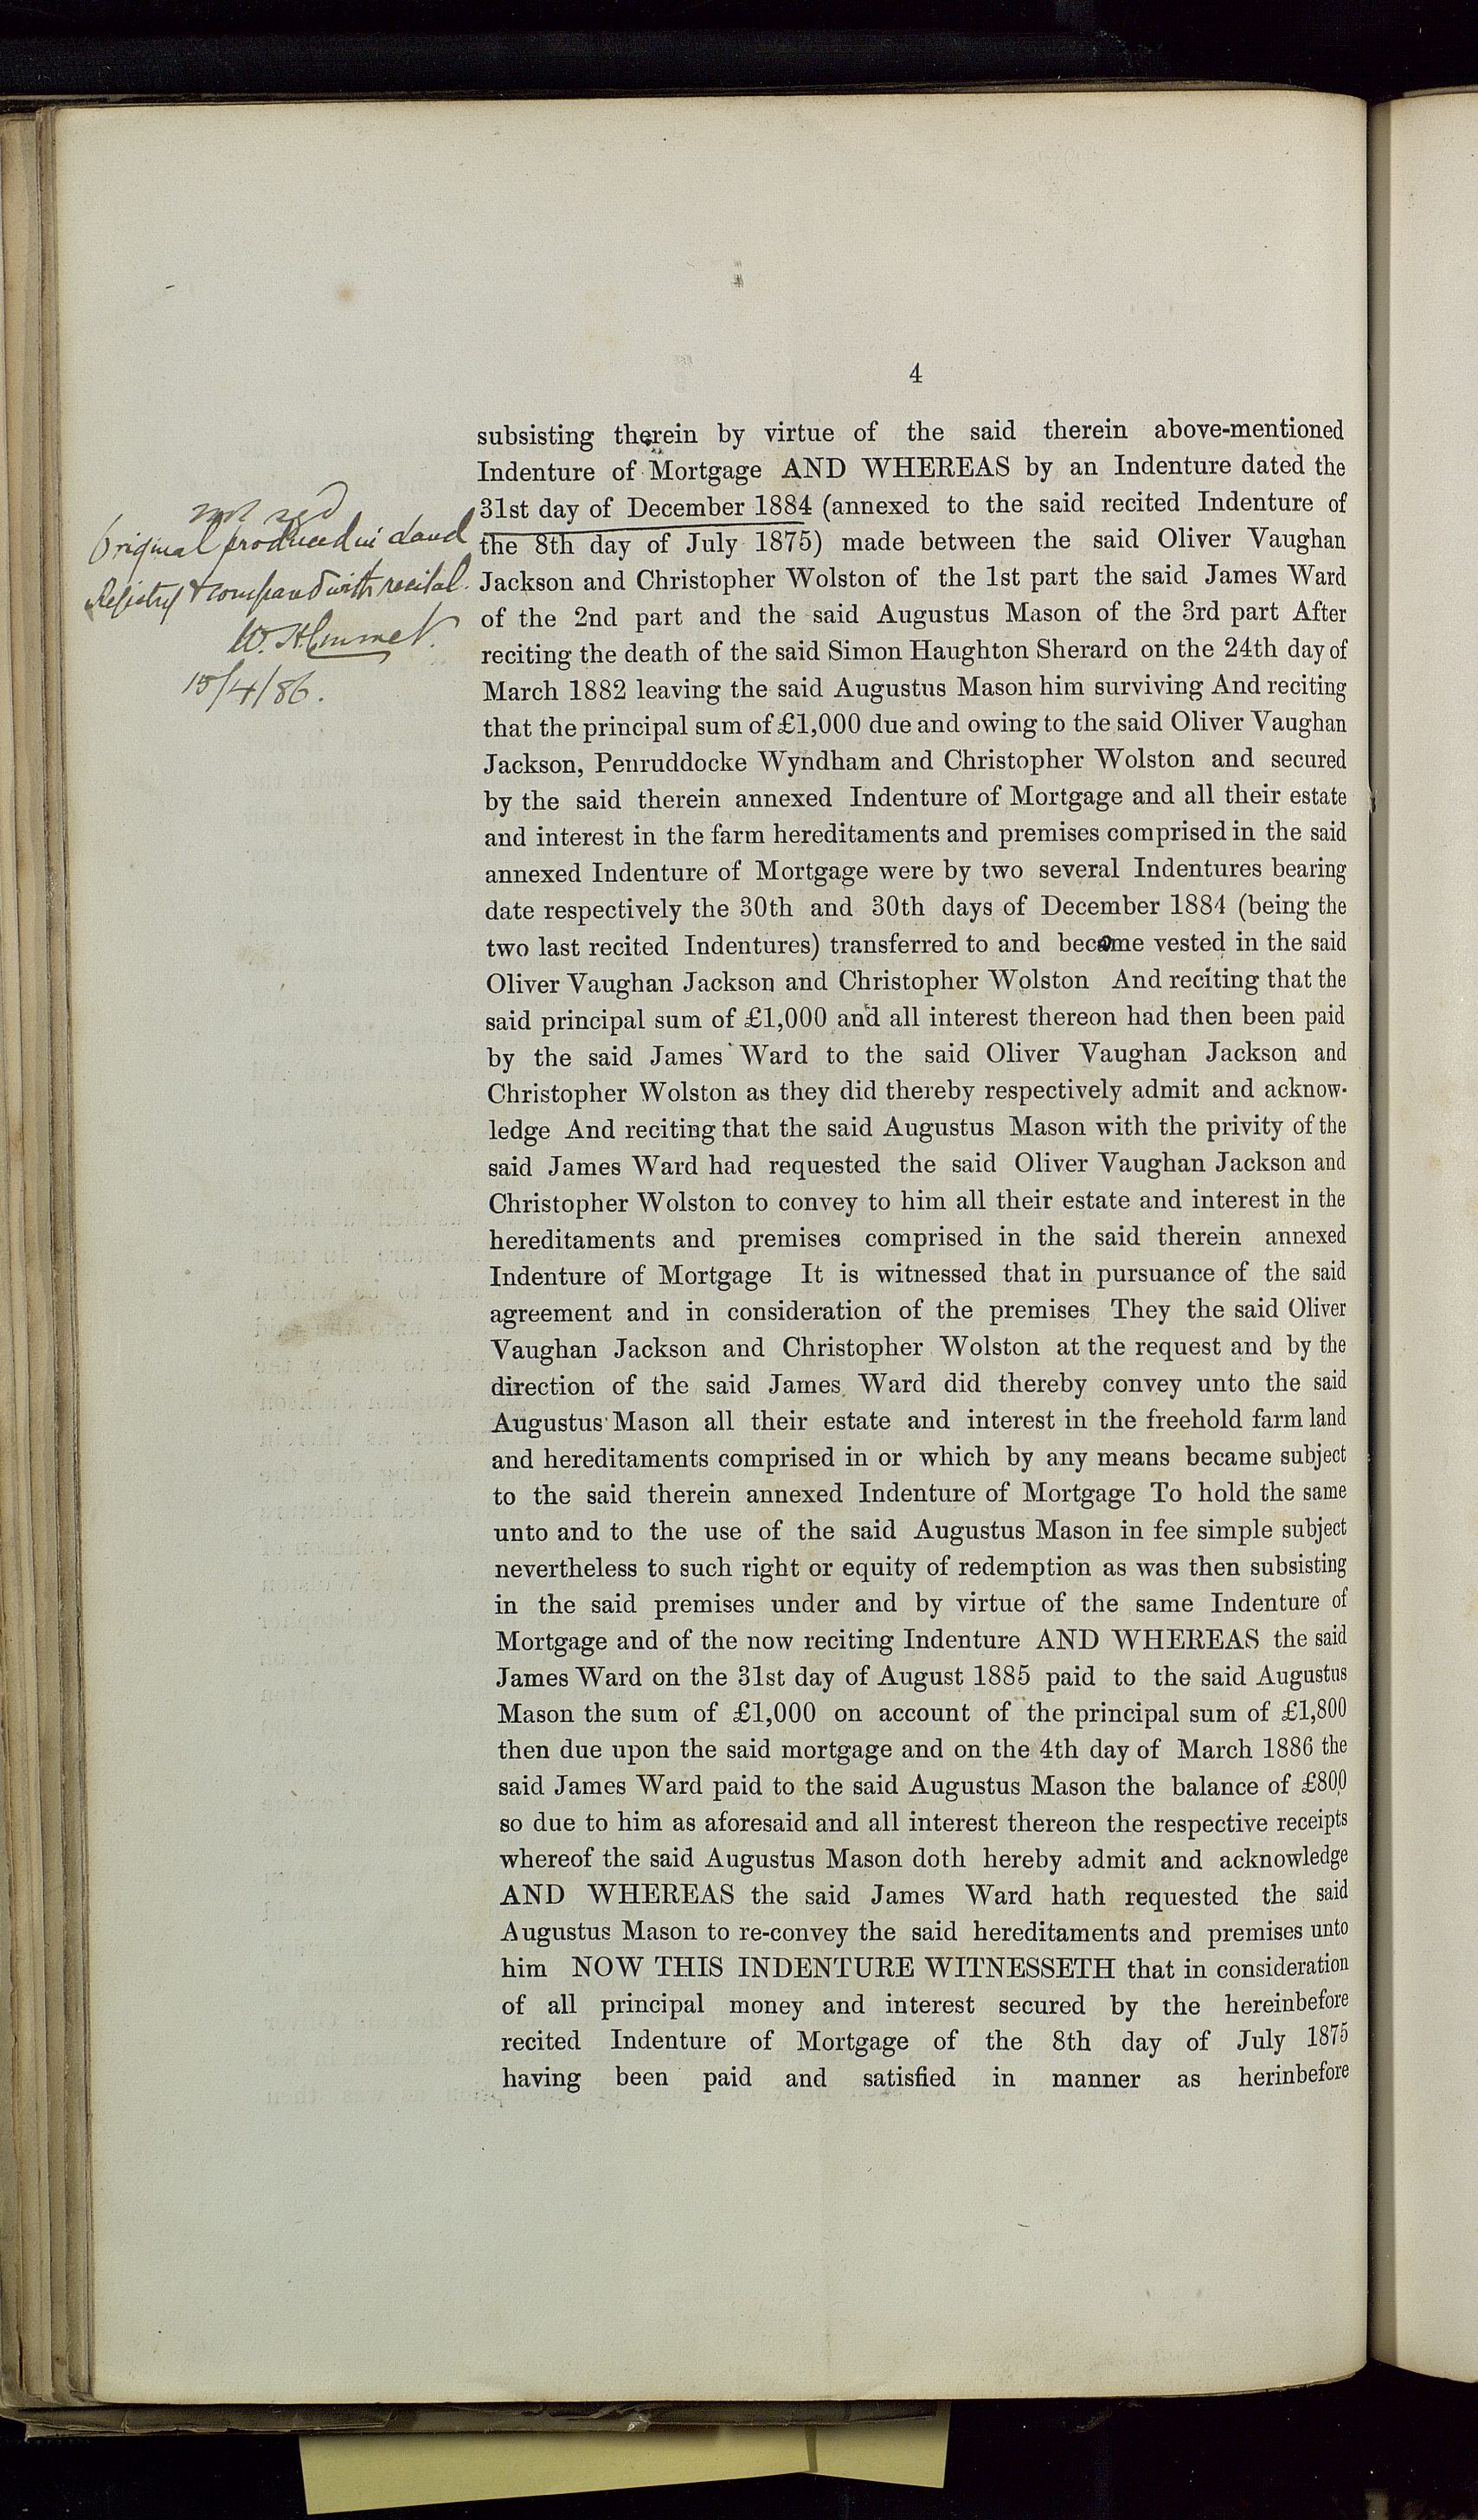 4
subsisting therein by virtue of the said therein above-mentioned
Indenture of Mortgage AND WHEREAS by an Indenture dated the
31st day of December 1884 (annexed to the said recited Indenture of
the 8th day of July 1875) made between the said Oliver Vaughan
Jackson and Christopher Wolston of the 1st part the said James Ward
of the 2nd part and the said Augustus Mason of the 3rd part After
reciting the death of the said Simon Haughton Sherard on the 24th day of
March 1882 leaving the said Augustus Mason him surviving And reciting
that the principal sum of £1,000 due and owing to the said Oliver Vaughan
Jackson, Penruddocke Wyndham and Christopher Wolston and secured
by the said therein annexed Indenture of Mortgage and all their estate
and interest in the farm hereditaments and premises comprised in the said
annexed Indenture of Mortgage were by two several Indentures bearing
date respectively the 30th and 30th days of December 1884 (being the
two last recited Indentures) transferred to and became vested in the said
Oliver Vaughan Jackson and Christopher Wolston And reciting that the
said principal sum of £1,000 and all interest thereon had then been paid
by the said James Ward to the said Oliver Vaughan Jackson and
Christopher Wolston as they did thereby respectively admit and acknow-
ledge And reciting that the said Augustus Mason with the privity of the
said James Ward had requested the said Oliver Vaughan Jackson and
Christopher Wolston to convey to him all their estate and interest in the
hereditaments and premises comprised in the said therein annexed
Indenture of Mortgage It is witnessed that in pursuance of the said
agreement and in consideration of the premises They the said Oliver
Vaughan Jackson and Christopher Wolston at the request and by the
direction of the said James Ward did thereby convey unto the said
Augustus Mason all their estate and interest in the freehold farm land
and hereditaments comprised in or which by any means became subject
to the said therein annexed Indenture of Mortgage To hold the same
unto and to the use of the said Augustus Mason in fee simple subject
nevertheless to such right or equity of redemption as was then subsisting
in the said premises under and by virtue of the same Indenture of
Mortgage and of the now reciting Indenture AND WHEREAS the said
James Ward on the 31st day of August 1885 paid to the said Augustus
Mason the sum of £1,000 on account of the principal sum of £1,800
then due upon the said mortgage and on the 4th day of March 1886 the
said James Ward paid to the said Augustus Mason the balance of £800
so due to him as aforesaid and all interest thereon the respective receipts
whereof the said Augustus Mason doth hereby admit and acknowledge
AND WHEREAS the said James Ward hath requested the said
Augustus Mason to re-convey the said hereditaments and premises unto
him NOW THIS INDENTURE WITNESSETH that in consideration
of all principal money and interest secured by the hereinbefore
recited Indenture of Mortgage of the 8th day of July 1875
having been paid and satisfied in manner as herinbefore
not regd
Original produced in Land
Registry & compared with recital.
W. H. Emmet.
15/4/86.